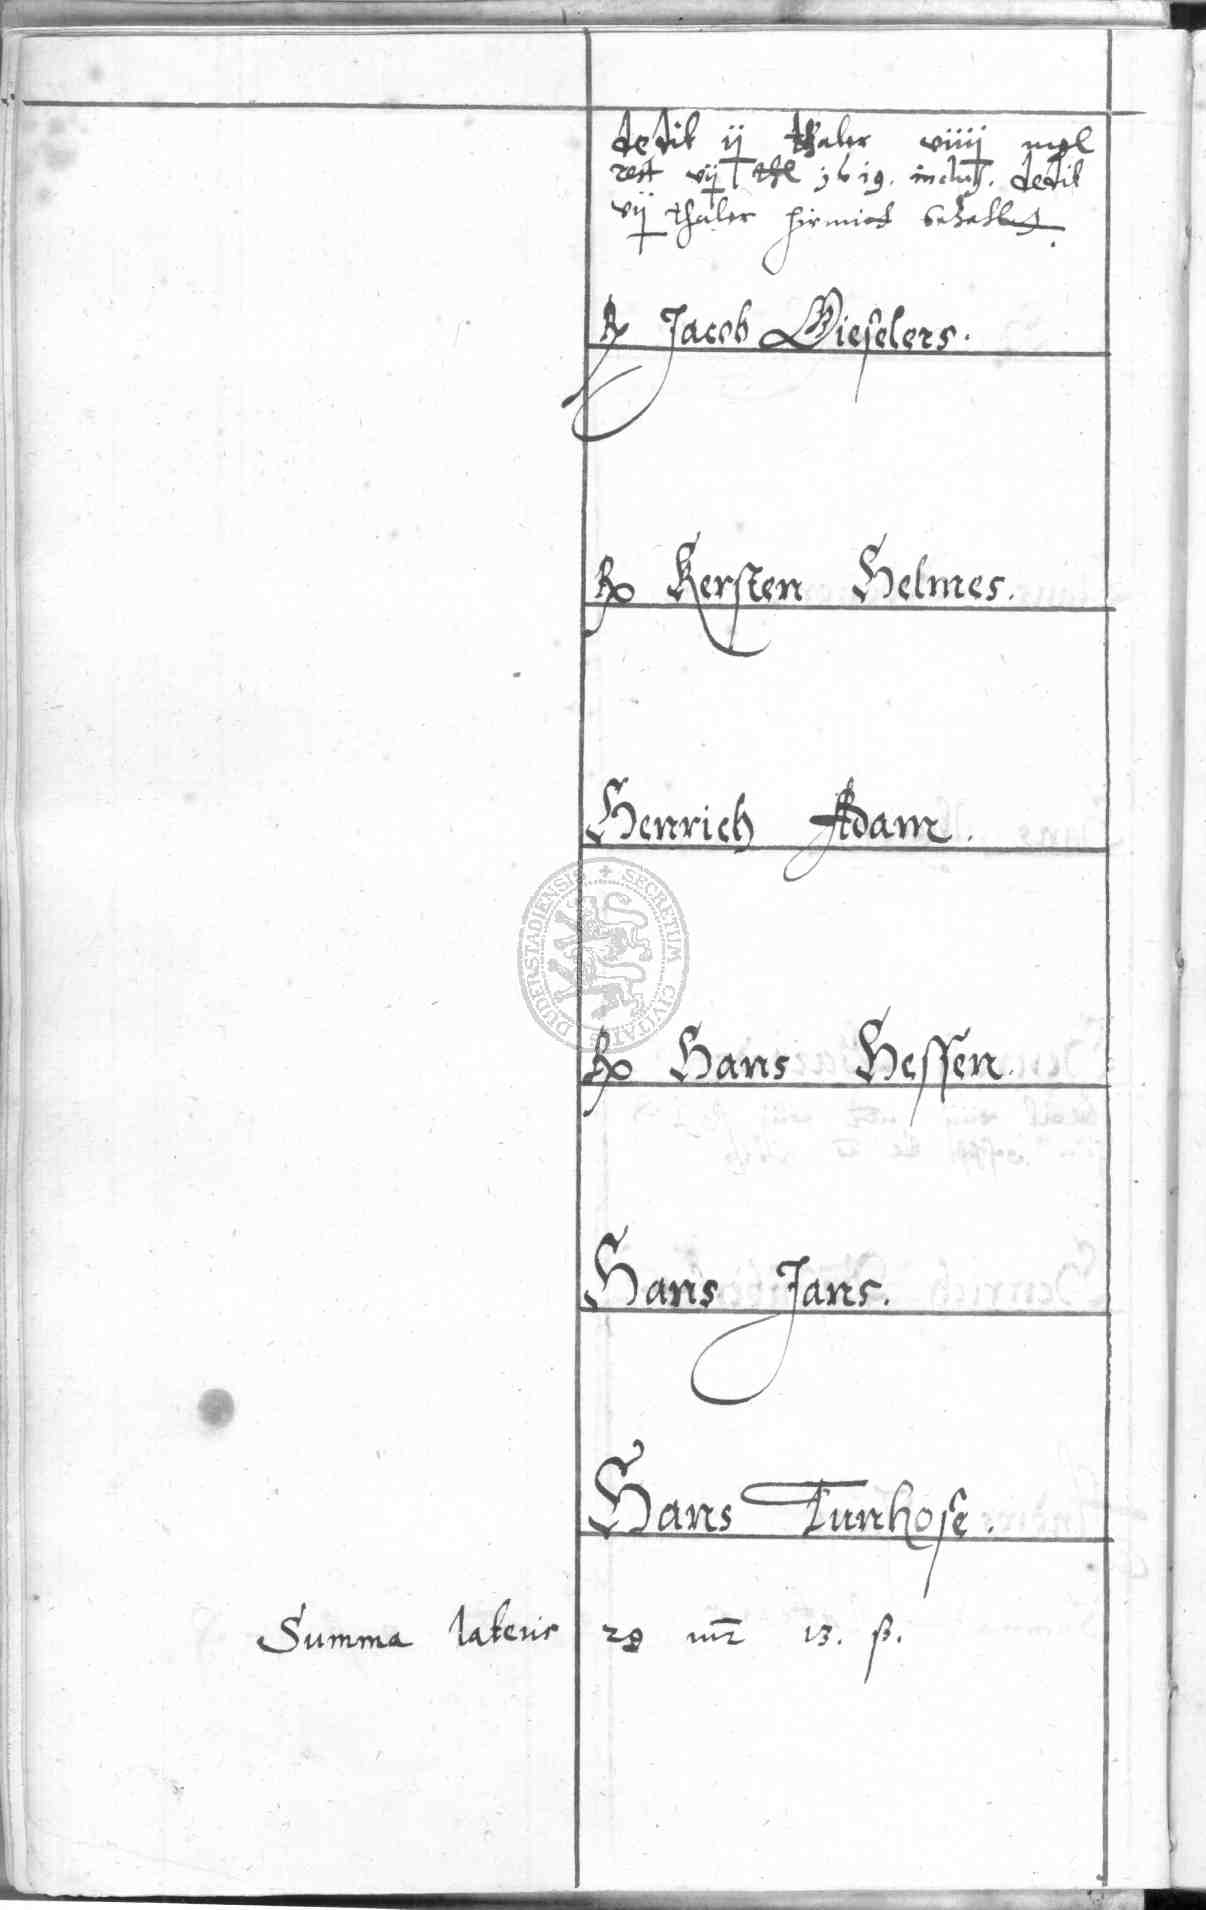 dedit ij thaler viiij mgl
rest vij thl 1619. inclus. dedit
vij thaler hirmiet bezahlt.
Jacob Gieselers.
Kersten Helmes.
Henrich Adam.
DUDERSTADIENSIS + SECRETUM CIVITATIS
Hans Hessen.
Hans Jans.
Hans Tunhose.
Summa lateris 28 mr 13. ß.